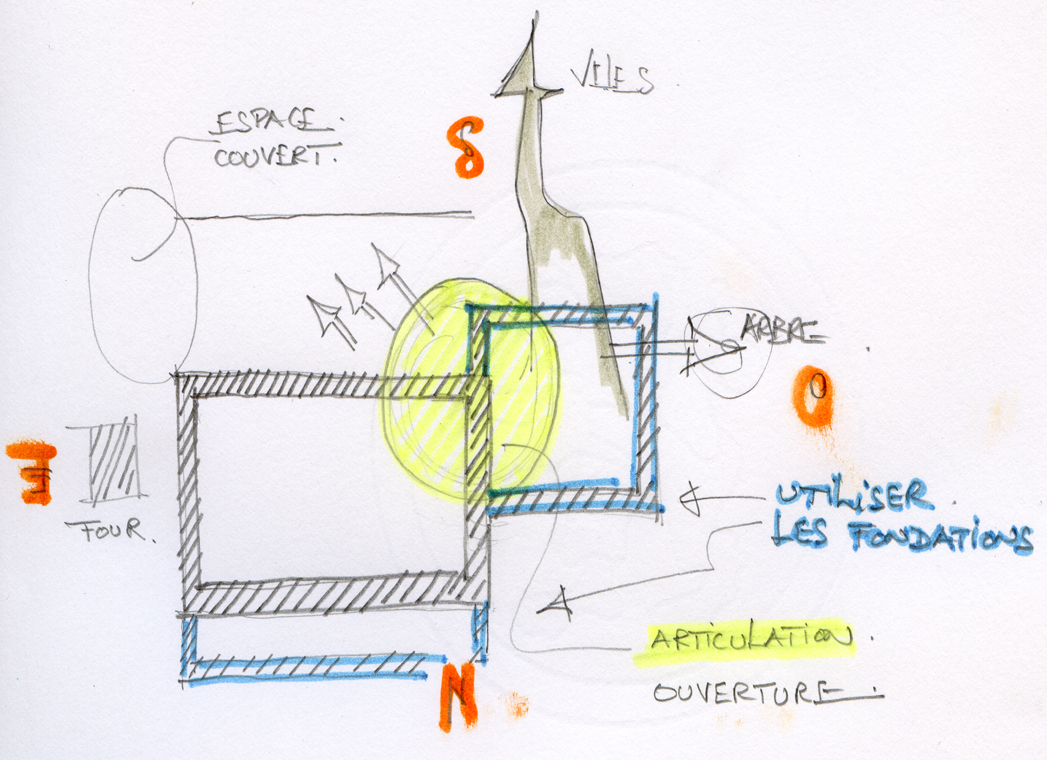 VUES
ESPACE
COUVERT.
S
ARBRE
O
E
FOUR.
UTILISER
LES FONDATIONS
ARTICULATION.
OUVERTURE.
N